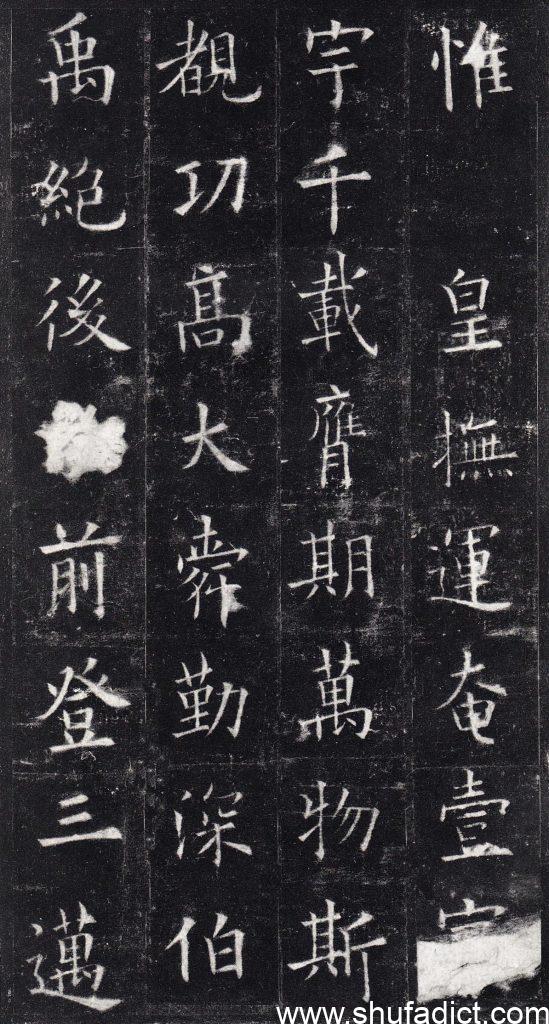 惟皇撫運奄壹
宇千載膺期萬物斯
覩功髙大舜勤深伯
禹絶後前登三邁
www.shufadict.com